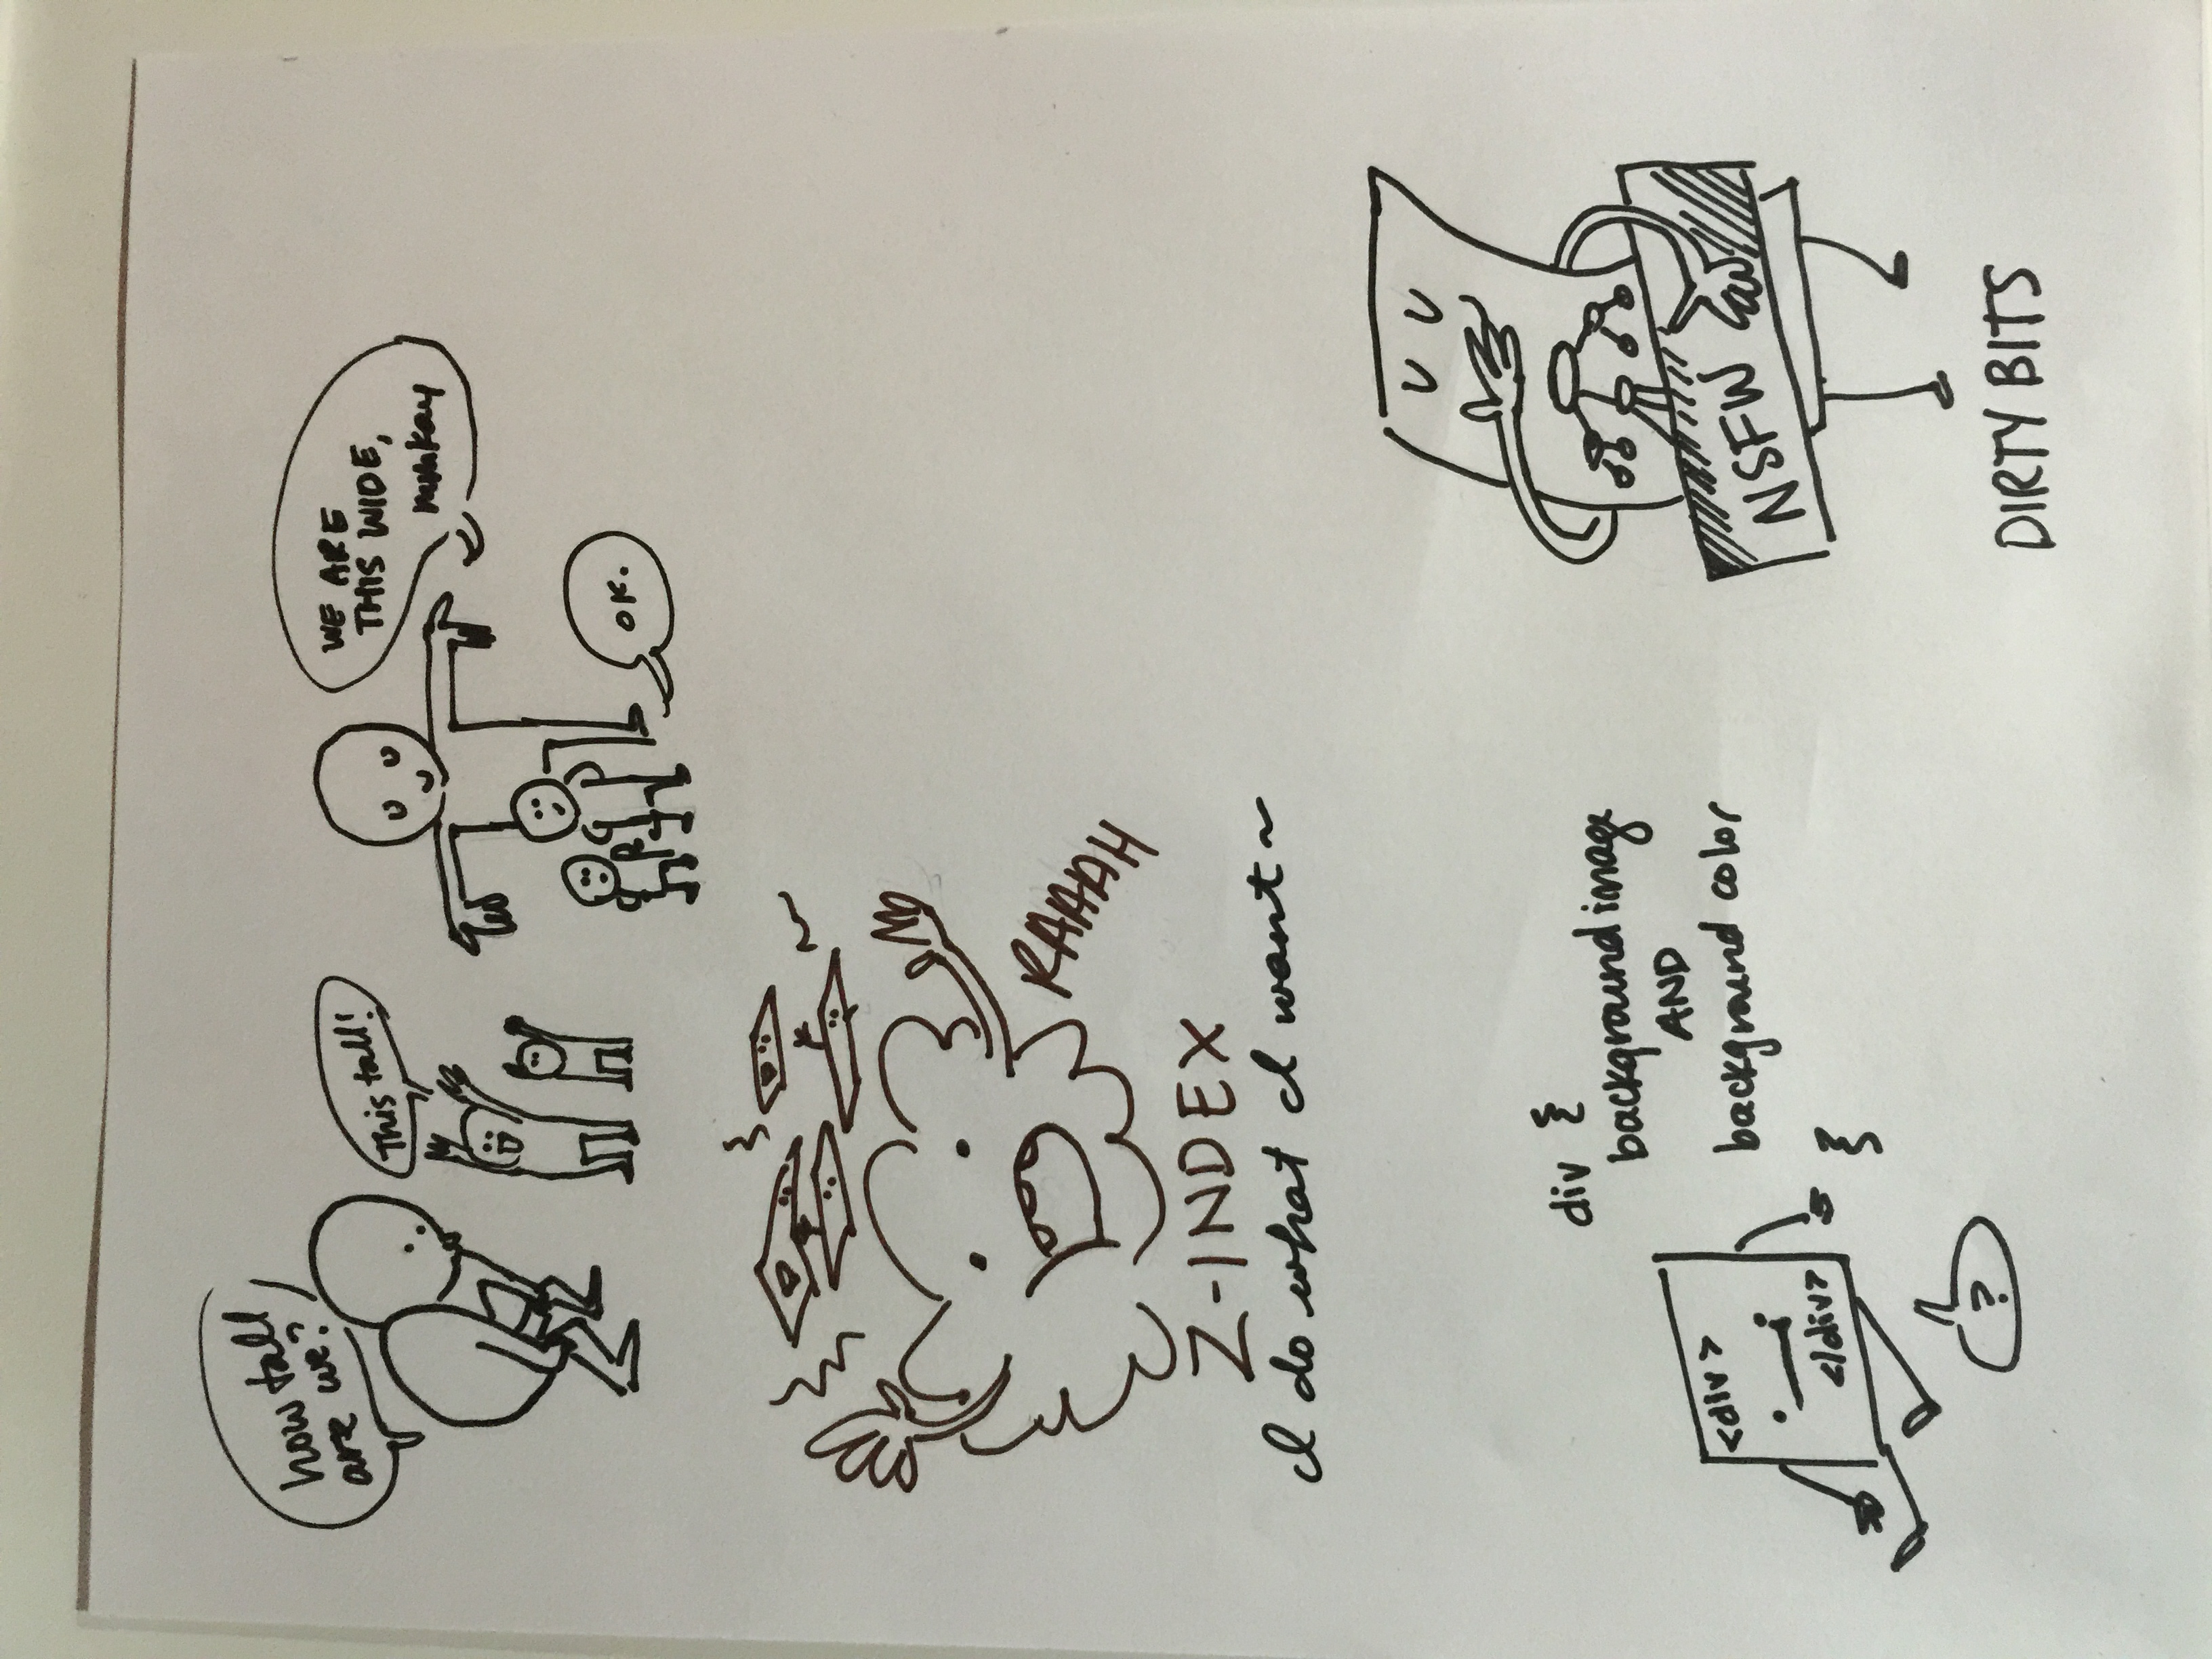 how tall
are we?
This tall!
WE ARE
THIS WIDE,
mmkay
OK.
RAAAAH
Z-INDEX
I do what I want~
div {
background image
AND
background color
}
<div>
</div>
?
NSFW
DIRTY BITS